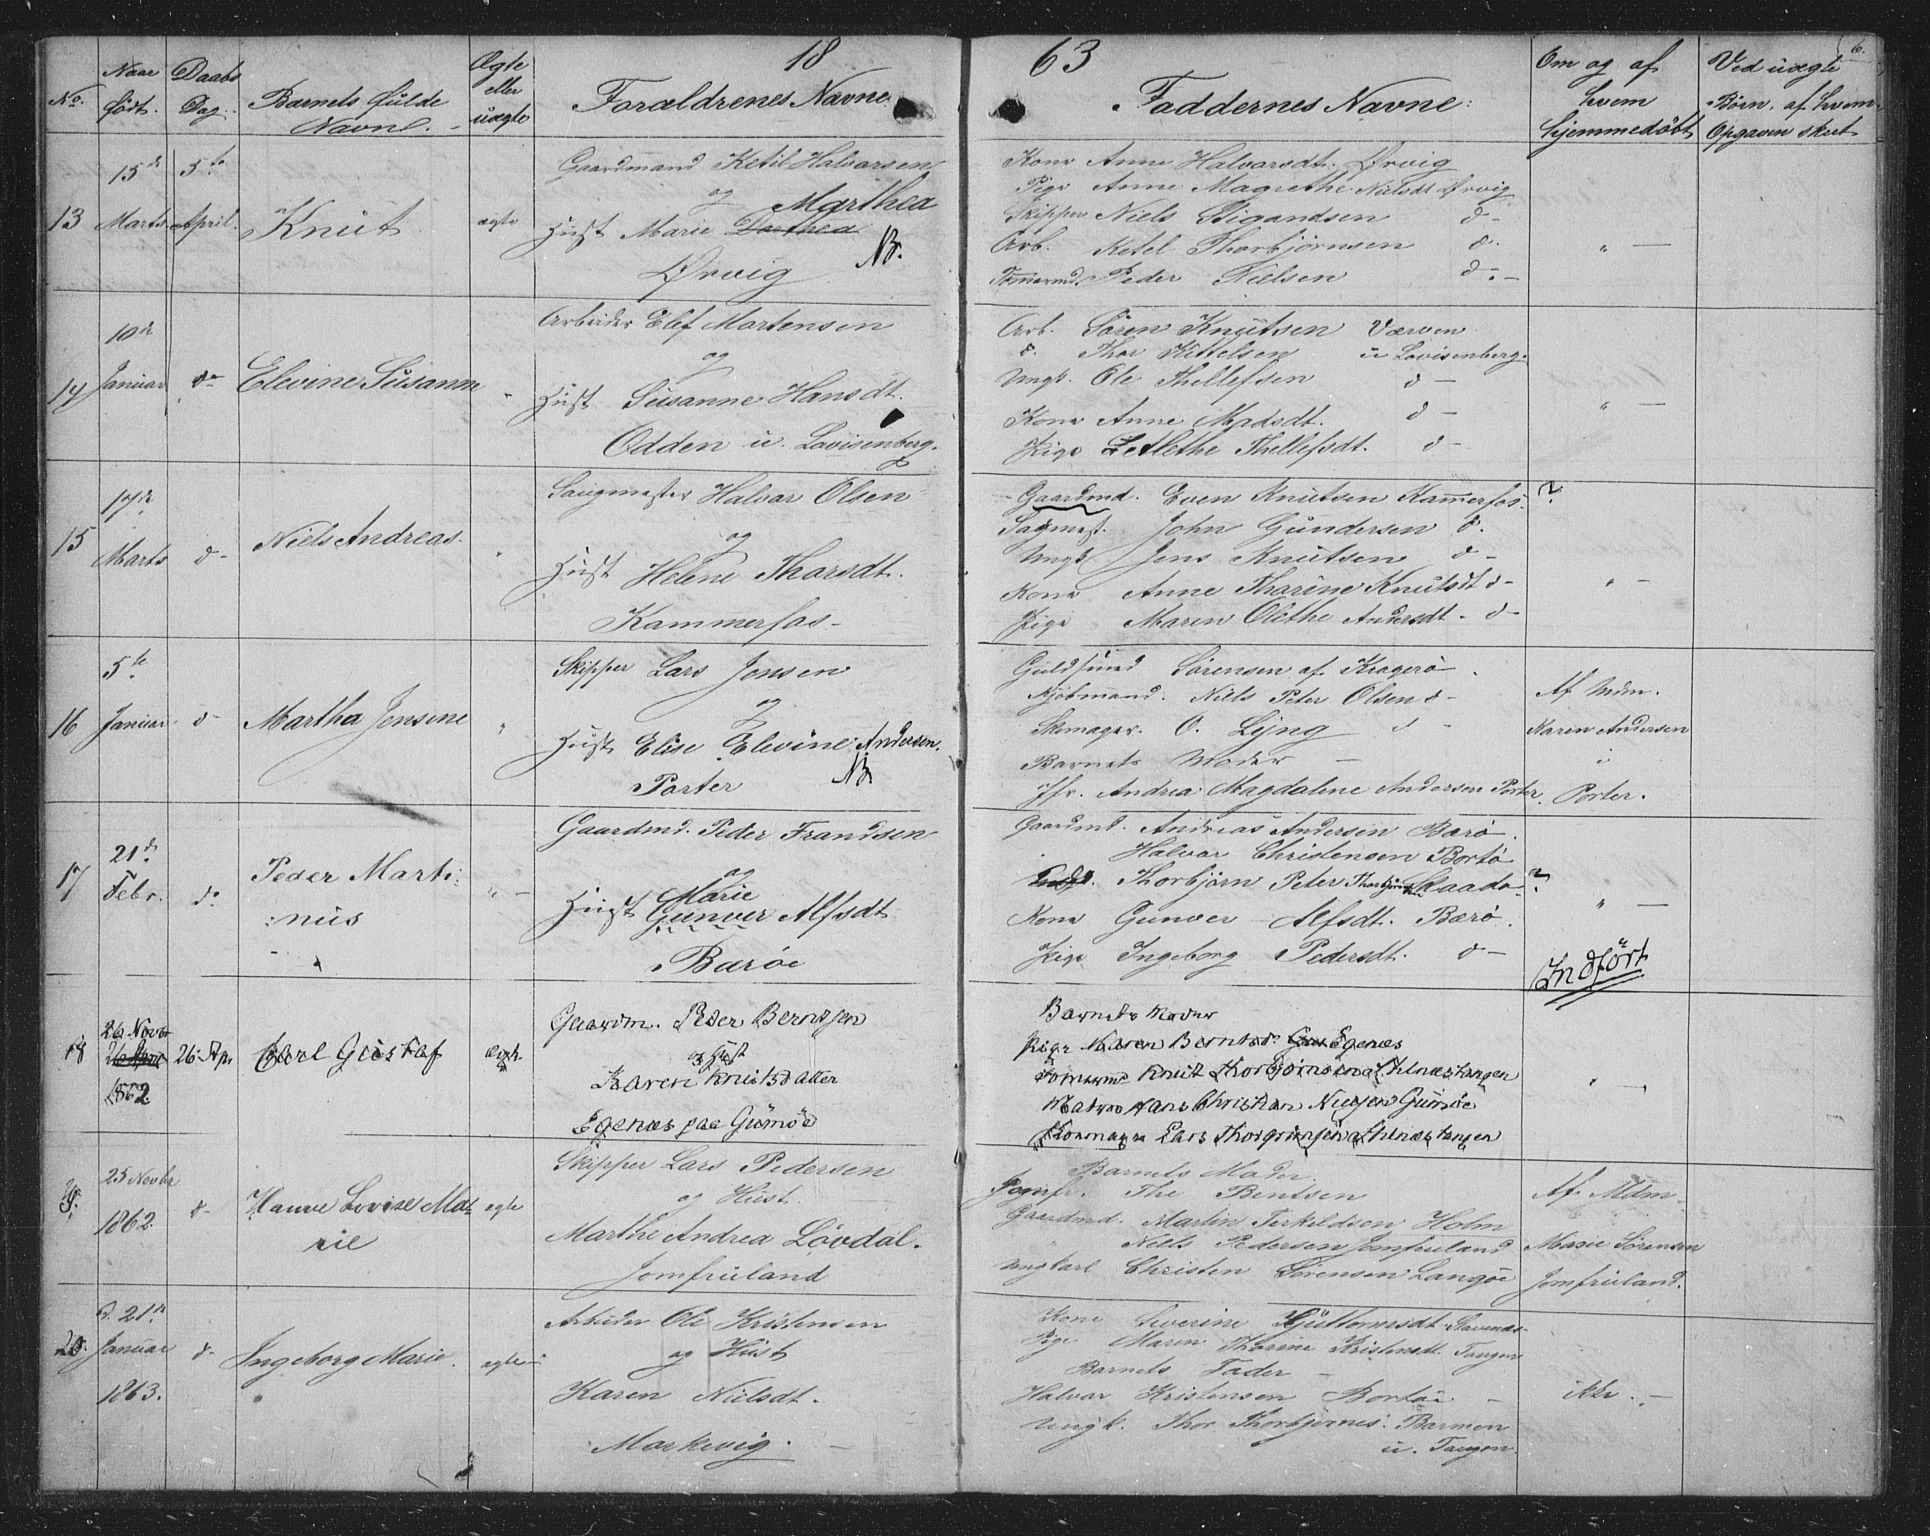 18 63
6.
No.
Naar
födt.
Daabs
Dag.
Barnets fulde
Navne.
Ægte
eller
uægte
Forældrenes Navne
Faddernes Navne:
Om og af
hvem
hjemmedöbt
Ved uægte
Börn, af hvem
Opgaven skeet
13
15de
Marts
5te
April.
Knut
ægte
Gaardmand Ketil Halvorsen
og Marthea
Hust Marie Dorthea
NB.
Ørvig
Kone Anne Halvorsdt. Ørvig
Pige Anne Magrethe Nielsdt Ørvig
Skipper Niels Stigandsen d-
Arb. Ketel Thorbjørnsen d-
Tømermd. Peder Nielsen d-
" -
14
10de
Januar
do
Elevine Susanne
Arbeider Elef Mortensen
og
Hust Susanne Hansdt.
Odden u. Lovisenberg.
Arb. Sören Knutsen Værven
d. Thor Kittelsen u Lovisenberg.
Ungk. Ole Thellefsen d-
Kone Anne Madsdt. d-
Pige Thellefsdt. d-
" -
15
17de
Marts
d-
Niels Andreas.
"
Saugmester Halvor Olsen
og
Hust Helene Thorsdt.
Kammerfos-
Gaardmd. Even Knutsen Kammerfos. ?
Sagmest. John Gundersen d.
Ungk. Jens Knutsen d-
Kone Anne Thorine Knutsdt d-
Pige Maren Olethe Andersdt. d-
" -
16
5te
Januar
d-
Martha Jensine
"
Skipper Lars Jensen
og
Hust Elise Elevine Andersen.
Porter NB
Guldsmed Sörensen af Kragerö
Kjöbmand. Niels Peter Olsen d-
Skomager. O. Lyng d-
Barnets Moder -
Jfr. Andrea Magdalene Andersen Porter.
Af Mdm.
Karen Andersen
i
Porter.
17
21de
Febr.
do
Peder Marti:
:nus
" -
Gaardmd. Peder Frandsen
og
Marie
Hust Gunver Alfsdt
Barøe
Gaardmd. Andreas Andersen Barö
Halvor Christensen Bortö
Thorbjörn Peter Thorbjörnsen Skaadø ?
Kone Gunver Alfsdt. Barö.
Pige Ingeborg Pedersdt. d-
" -
Indfört
18
26 Novbr
1862
26 Ap.
Carl Gustaf
Gaardm. Peder Berntsen
og Hust
Karen Knutsdatter
Egenæs paa Gumöe
Barnets Moder
Pige Maren Berntsd. Egenæs
Tømermd Knut Thorbjörnsen
Matros Hans Christian Nielsen Gumöe
Lars Thorgrimsen
"
25 Novbr
1862
d-
Hanne Lovise Ma-
rie
egte
Skipper Lars Pedersen
og Hust.
Marthe Andrea Lövdal.
Jomfruland
Barnets Moder
Jomfr. Bentsen
Gaardmd. Martin Terkeldsen Holm
Niels Pedersen Jomfruland
Ungkarl Christen Sörensen Langöe
Af Mdm.
Marie Sörensen
Jomfruland.
20.
d. 21de
Januar
1863.
d-
Ingeborg Marie.
egte
Arbeider Ole Kristensen
og Hust
Karen Nielsdt.
Markevig. -
Kone Severine Guttormsdt. Stavenæs-
Pige Maren Thorine Kristensdt Tangen
Barnets Fader -
Halvor Kristensen Bortöe -
Ungk. Thor Thorbjørns: Barmen
u. Tangen
ikke. -